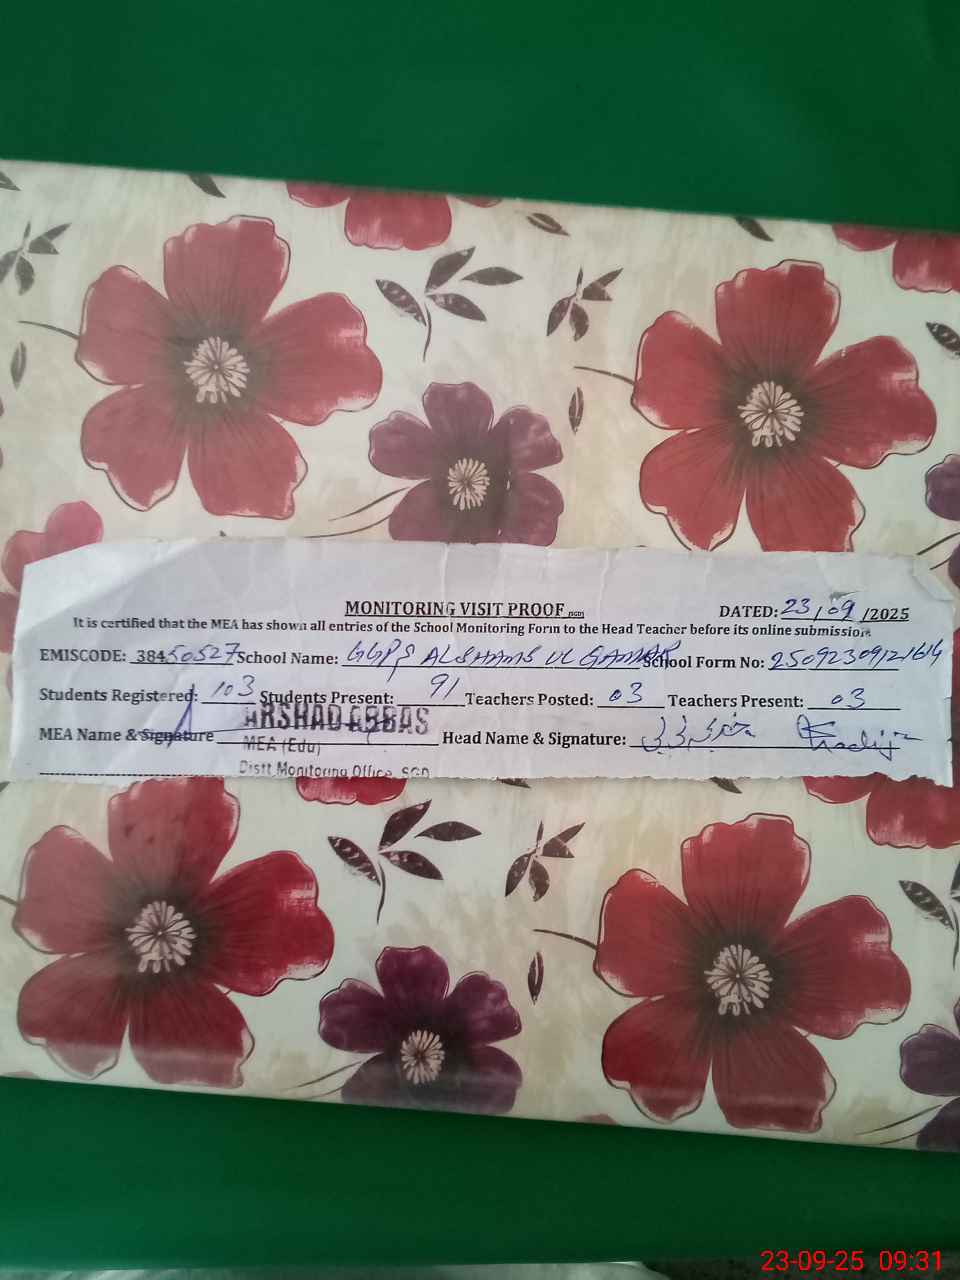 MONITORING VISIT PROOF (SGD) DATED: 23/09/2025
It is certified that the MEA has shown all entries of the School Monitoring Form to the Head Teacher before its online submission.
EMISCODE: 38450527 School Name: GGPS ALSHAMS UL QAMAR School Form No: 25092309121614
Students Registered: 103 Students Present: 91 Teachers Posted: 03 Teachers Present: 03
MEA Name & Signature ARSHAD ABBAS Head Name & Signature:
MEA (Edu)
Distt Monitoring Office, SGD
23-09-25 09:31